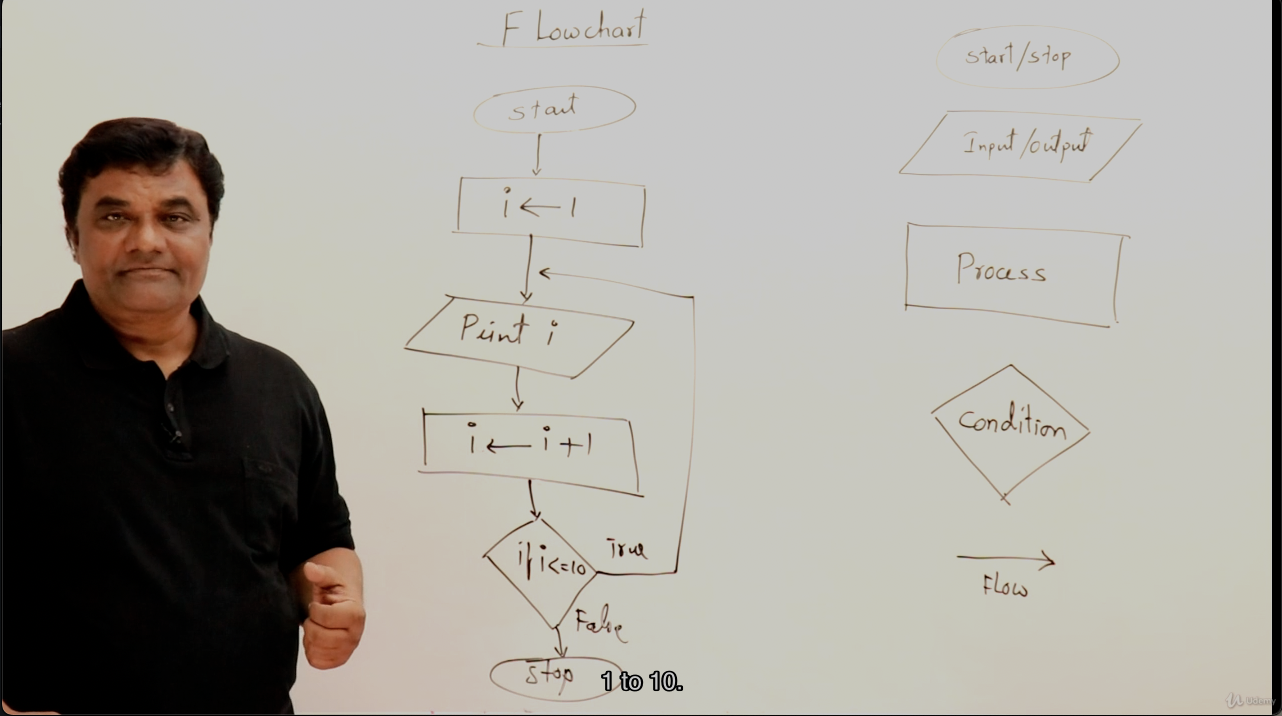 Flowchart
start
i ← 1
Print i
i ← i+1
if i<=10
True
False
stop
start/stop
Input/output
Process
Condition
Flow
1 to 10.
Udemy